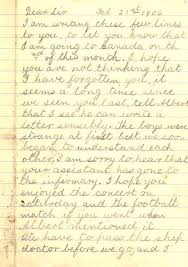 Dear Sir Feb. 21st 1906
I am writing these few lines
to you, to let you know that
I am going to Canada on th
of this month. I hope
you are not thinking that
I have forgotten you it
seems a long time since
we seen you last, tell Albert
that I see he can write a
letter sensibly. the boys were
strange at first but we soon
began to understand each
other, I am sorry to hear that
your assistant has gone to
the infirmary. I hope you
enjoyed the concert on
Saturday and the football
match if you went when
Albert mentioned it.
We have to pass the ship
doctor before we go, and I